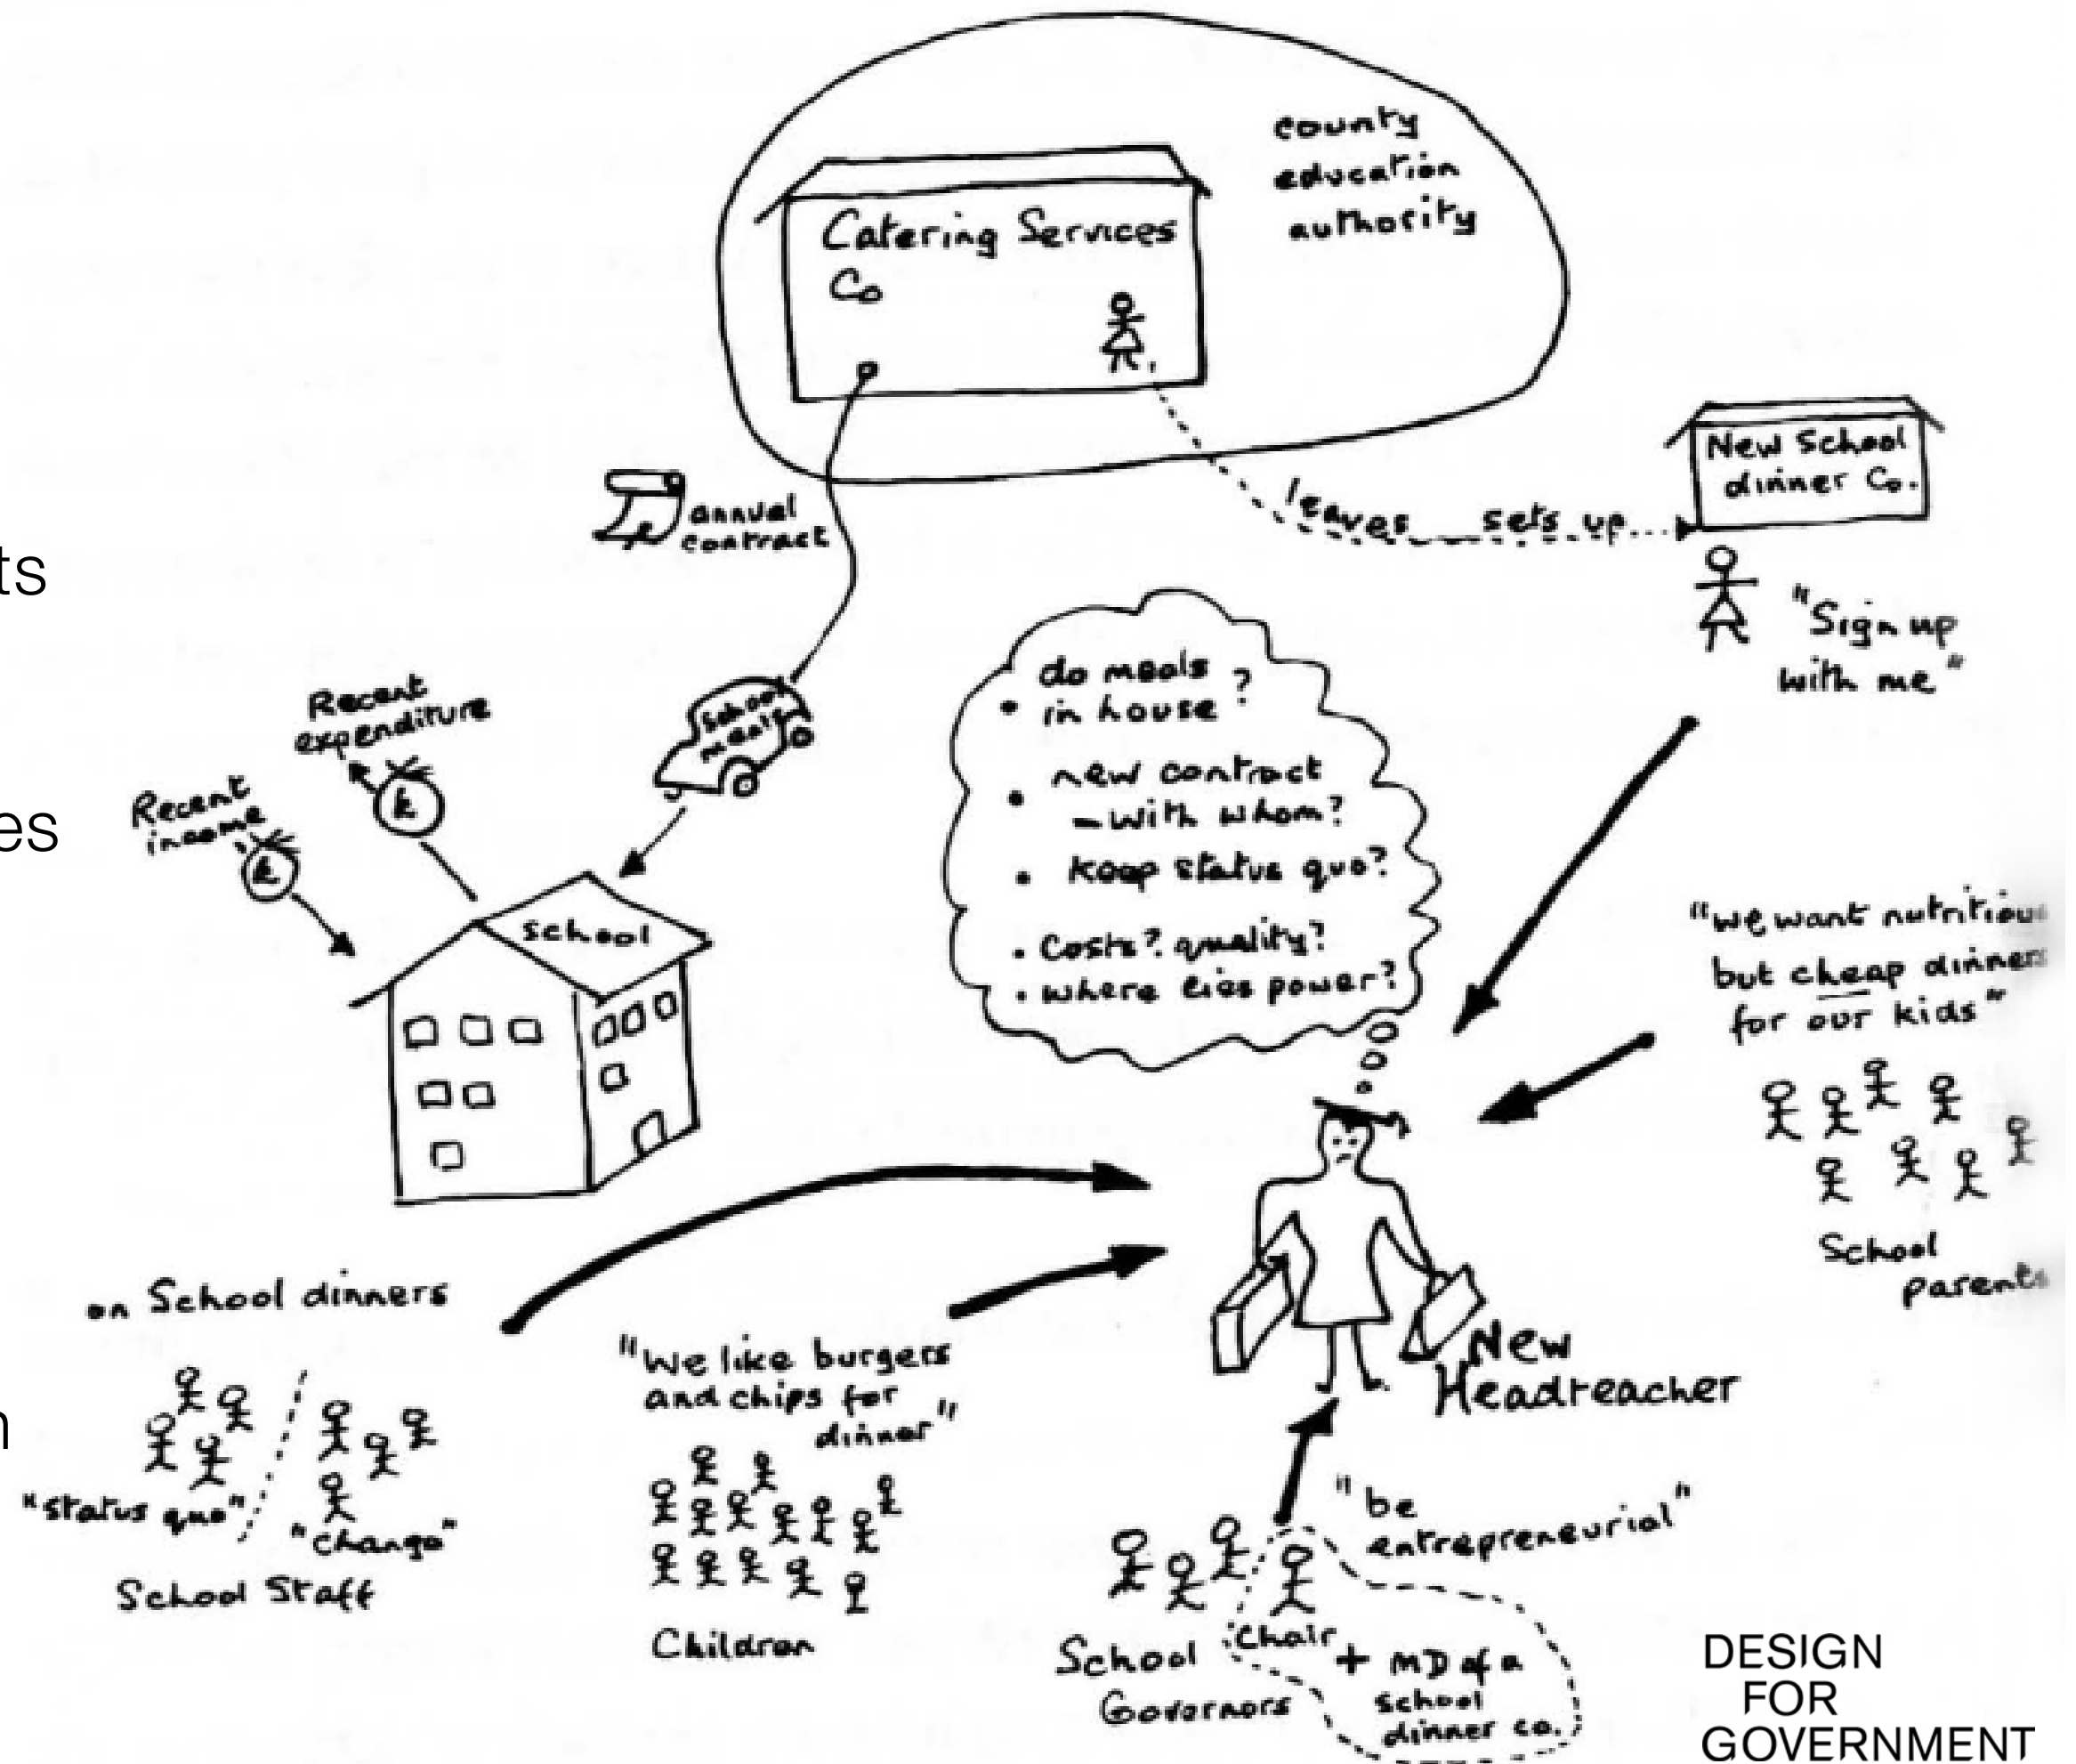 county
education
authority
Catering Services
Co
annual
contract
leaves sets up
New School
dinner Co.
"Sign up
with me"
ts
es
n
Recent
expenditure
£
Recent
income
£
School
meals
school
• do meals
in house ?
• new contract
- with whom?
• keep status quo?
• Costs? quality?
• where lies power?
"we want nutritiou
but cheap dinners
for our kids"
School
parents
on School dinners
"status quo"
"change"
School Staff
"We like burgers
and chips for
dinner"
Children
New
Headteacher
"be
entrepreneurial"
School
Governors
Chair
+ MD of a
school
dinner co.
DESIGN
FOR
GOVERNMENT